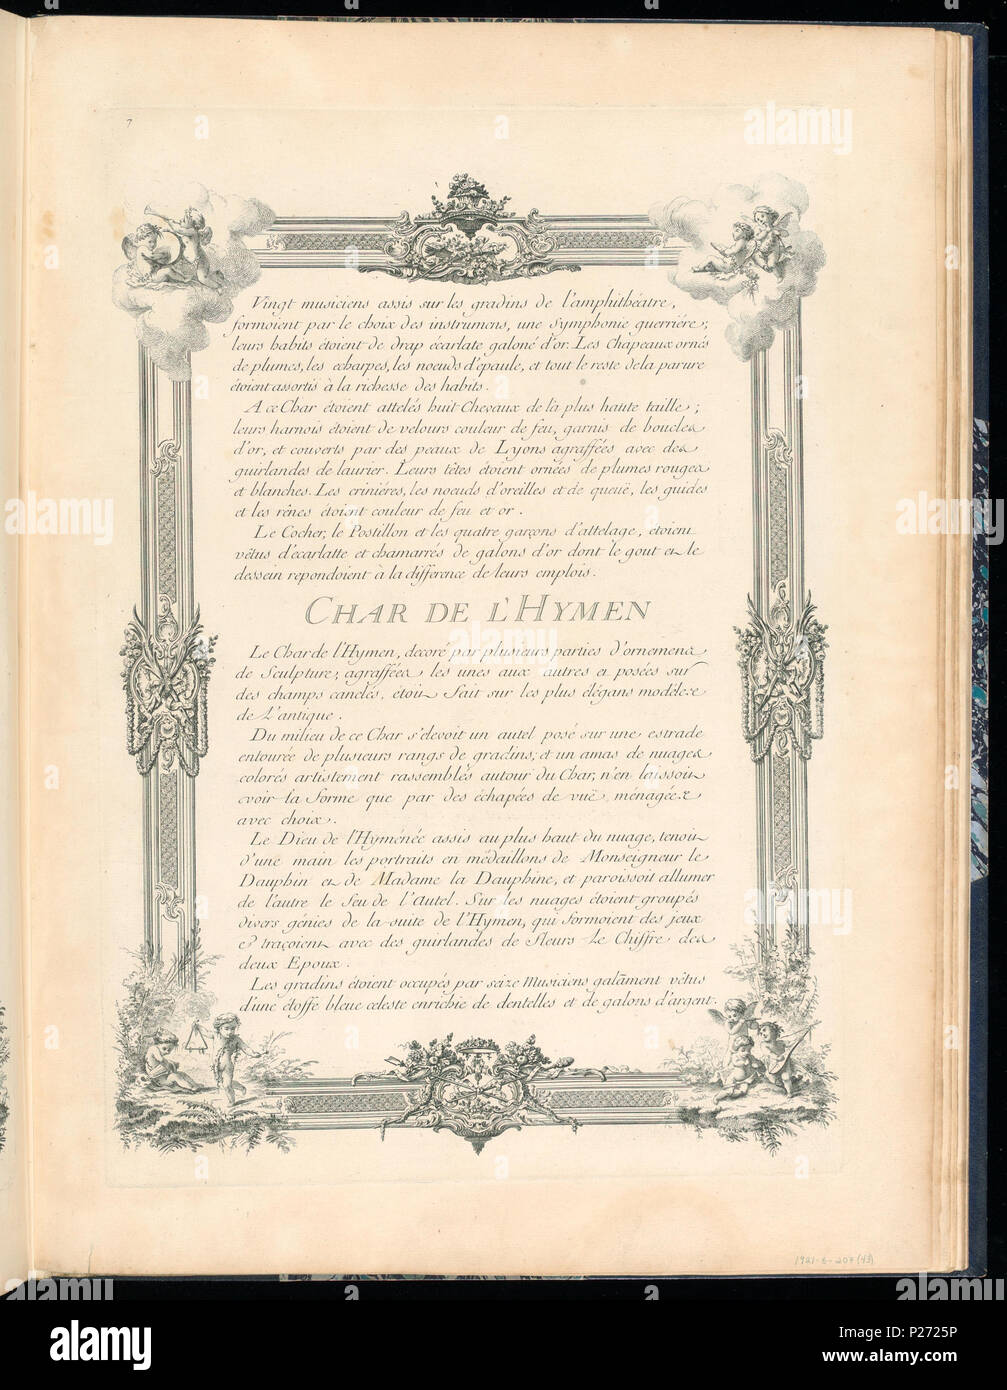 7
Vingt musiciens assis sur les gradins de l'amphithéatre,
formoient par le choix des instrumens, une Symphonie guerriére;
leurs habits étoient de drap écarlate galoné d'or. Les Chapeaux ornés
de plumes, les echarpes, les noeuds d'épaule, et tout le reste de la parure
étoient assortis à la richesse des habits.
A ce Char étoient attelés huit Chevaux de la plus haute taille;
leurs harnois étoient de velours couleur de feu, garnis de boucles
d'or, et couverts par des peaux de Lyons agraffées avec des
guirlandes de laurier. Leurs têtes étoient ornées de plumes rouges
et blanches. Les criniéres, les noeuds d'oreilles et de queuë, les guides
et les rênes étoient couleur de feu et or.
Le Cocher, le Postillon et les quatre garçons d'attelage, étoient
vêtus d'ecarlatte et chamarrés de galons d'or dont le gout et le
dessein repondoient à la différence de leurs emplois.
CHAR DE L'HYMEN
Le Char de l'Hymen, decoré par plusieurs parties d'ornemens
de Sculpture, agraffées les unes aux autres et posées sur
des champs canelés, étoit fait sur les plus élégans modéles
de L'antique.
Du milieu de ce Char s'élevoit un autel posé sur une estrade
entourée de plusieurs rangs de gradins; et un amas de nuages
colorés artistement rassemblés autour du Char, n'en laissoit
voir la forme que par des échapées de vuë, ménagées
avec choix.
Le Dieu de l'Hyménée assis au plus haut du nuage, tenoit
d'une main les portraits en médaillons de Monseigneur le
Dauphin et de Madame la Dauphine, et paroissoit allumer
de l'autre le feu de l'Autel. Sur les nuages étoient groupés
divers génies de la suite de l'Hymen, qui formoient des jeux
et traçoient avec des guirlandes de fleurs le Chiffre des
deux Epoux.
Les gradins étoient occupés par seize Musiciens galāment vêtus
d'une étoffe bleue celeste enrichie de dentelles et de galons d'argent.
1921-6-207(43)
alamy
Image ID: P2725P
www.alamy.com